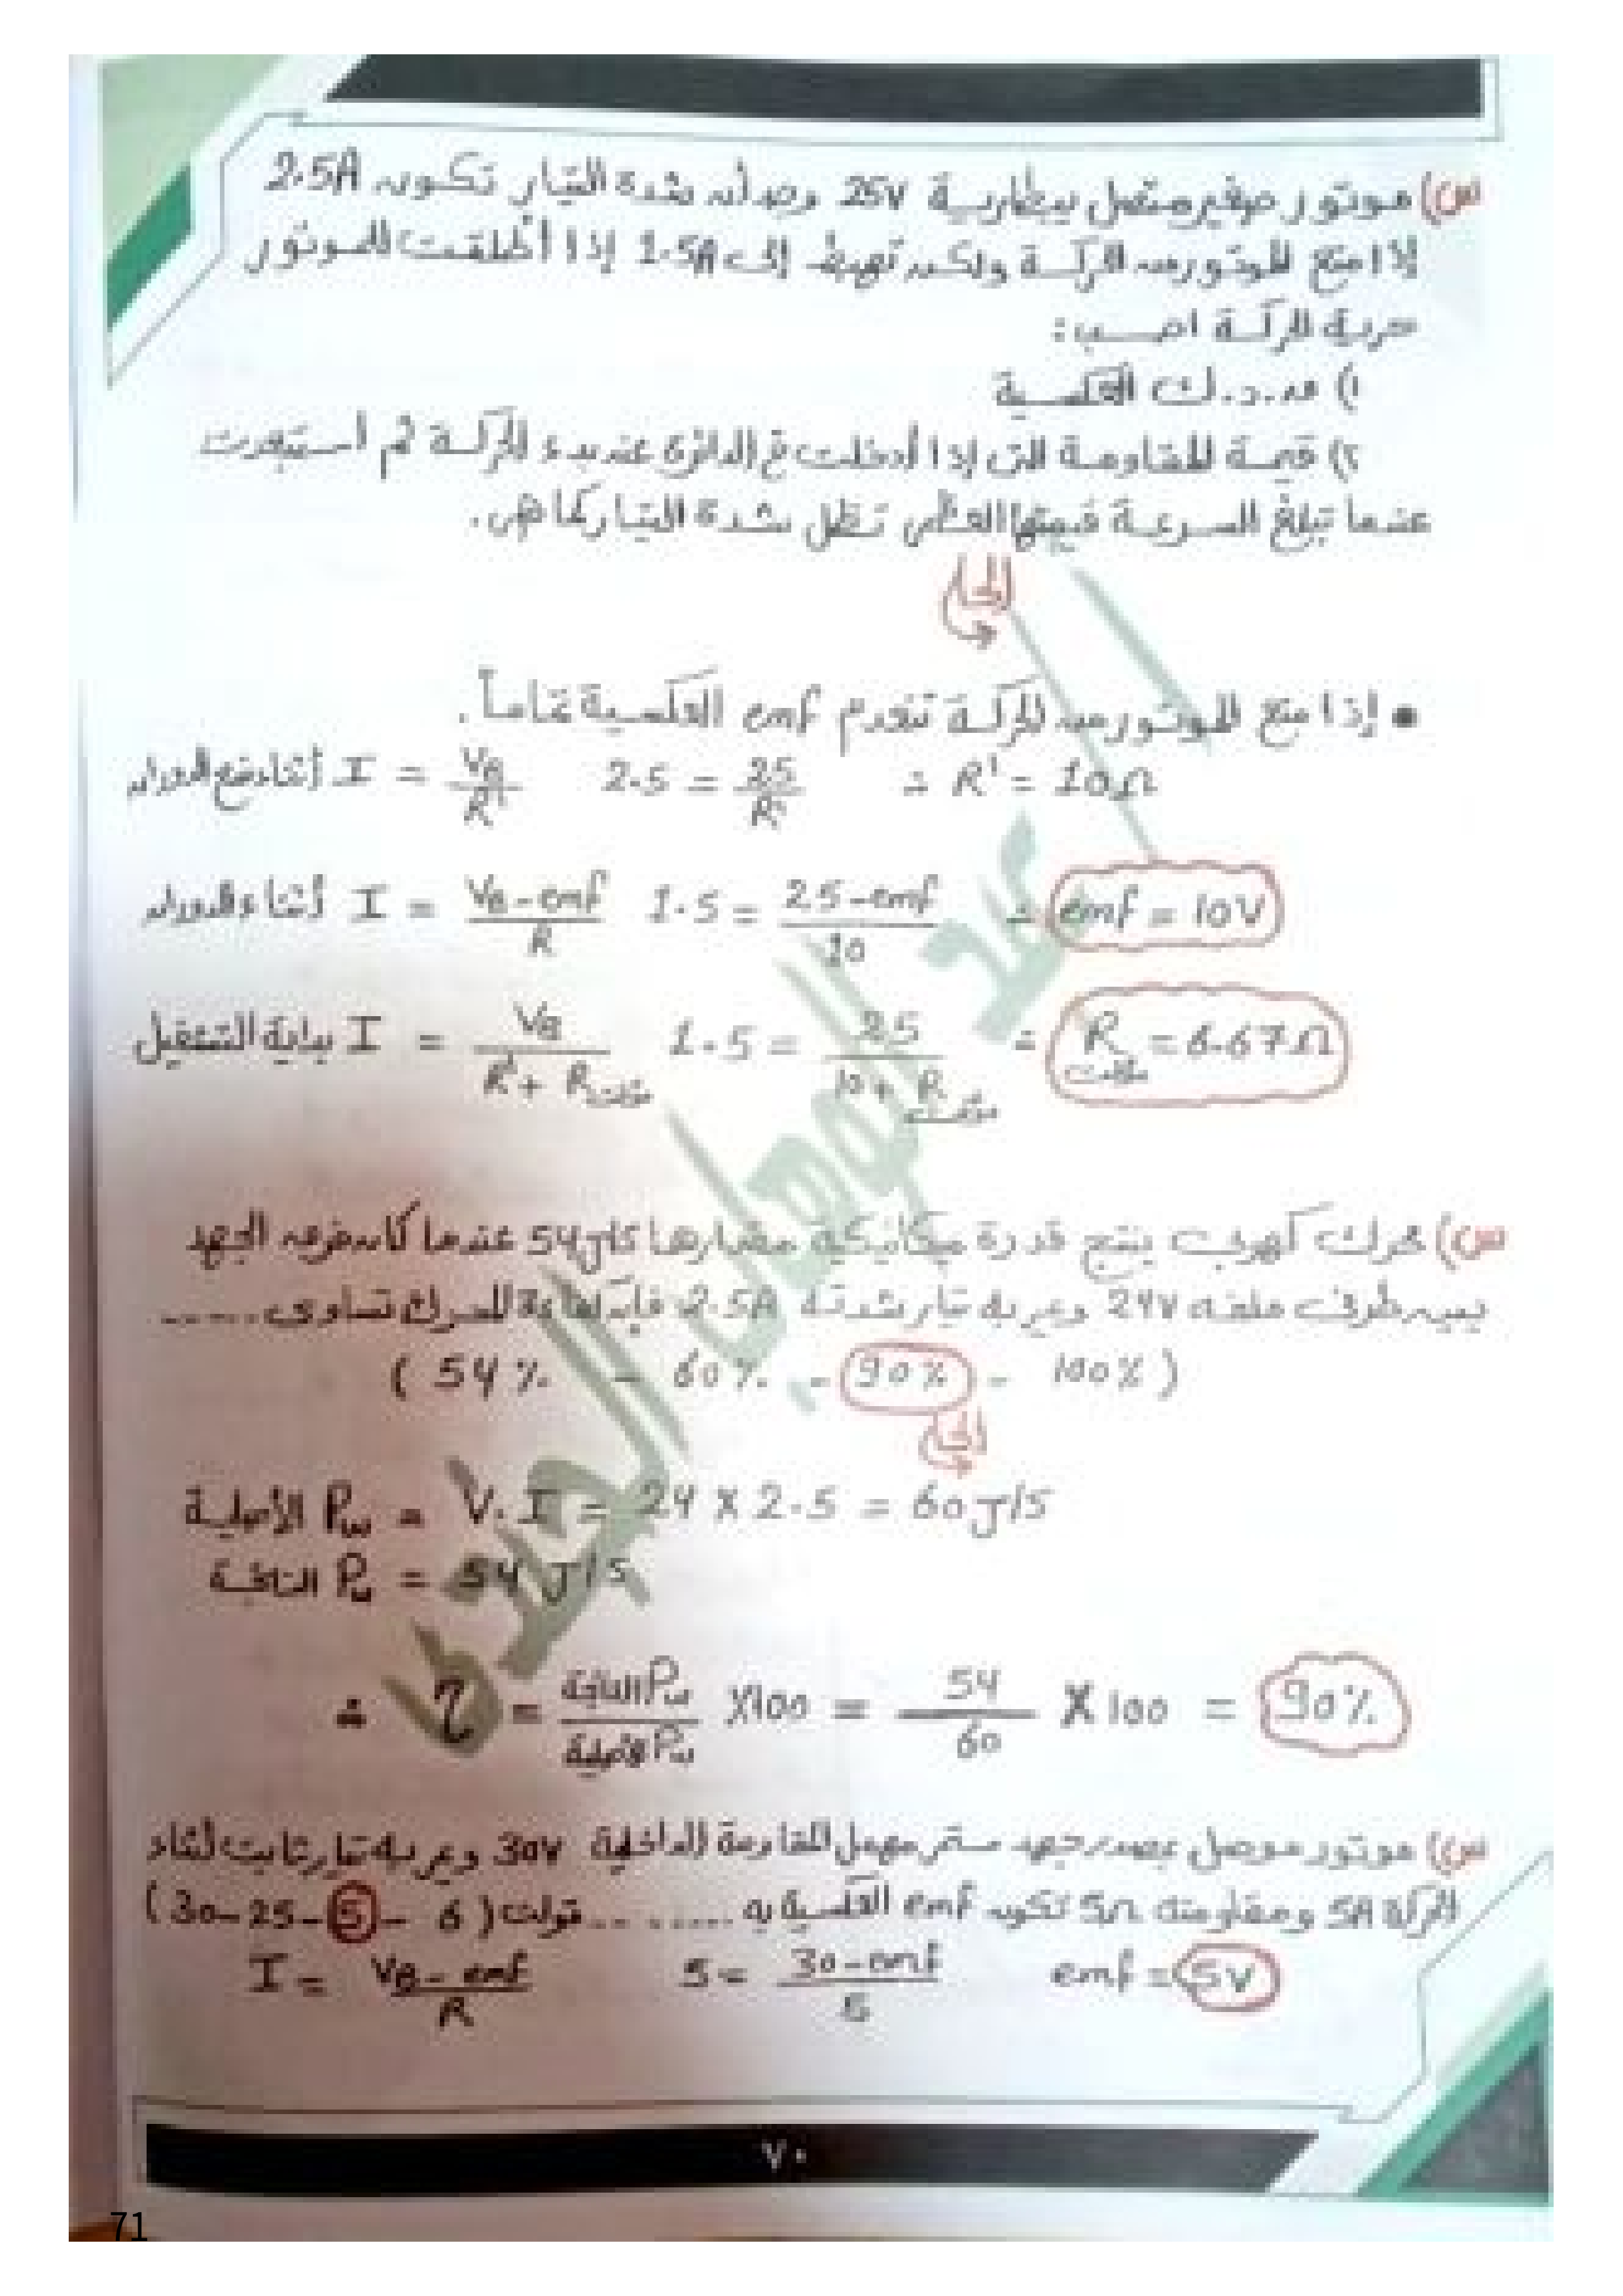 س) موتور صغير متصل ببطارية 25V وجد أن شدة التيار تكون 2.5A
إذا منع الموتور من الحركة ولكن تهبط إلى 1.5A إذا أطلقت للموتور
حرية الحركة احسب :
١) ق.د.ك العكسية
٢) قيمة المقاومة التى إذا أدخلت في الدائرة عند بدء الحركة ثم استبعدت
عندما تبلغ السرعة قيمتها العظمى تظل شدة التيار كما هى .
الحل
• إذا منع الموتور من الحركة تنعدم emf العكسية تماماً .
I أثناء منع الدوران = VB/R' 2.5 = 25/R' ∴ R' = 10Ω
I أثناء الدوران = VB-emf/R 1.5 = 25-emf/10 ∴ emf = 10V
I بداية التشغيل = VB/R'+R مؤقت 1.5 = 25/10+R مؤقت ∴ R مؤقت = 6.67Ω
س) محرك كهربى ينتج قدرة ميكانيكية مقدارها 54J/s عندما كان فرق الجهد
بين طرفى ملفه 24V ويمر به تيار شدته 2.5A فإن كفاءة المحرك تساوى ......
( 54% - 60% - 90% - 100% )
الحل
Pw الأصلية = V.I = 24 X 2.5 = 60 J/s
Pw الناتجة = 54 J/s
∴ η = Pw الناتجة/Pw الأصلية X100 = 54/60 X 100 = 90%
س) موتور موصل بمصدر جهد مستمر مهمل المقاومة الداخلية 30V ويمر به تيار ثابت أثناء
الحركة 5A ومقاومته 5Ω تكون emf العكسية به ........ فولت (30-25-5-6)
I = VB-emf/R 5 = 30-emf/5 emf = 5V
٧٠
71